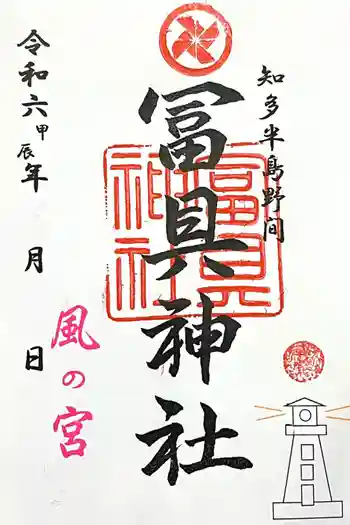 知多半島野間
冨具神社
富具
神社
風の宮
令和六甲辰年 月 日